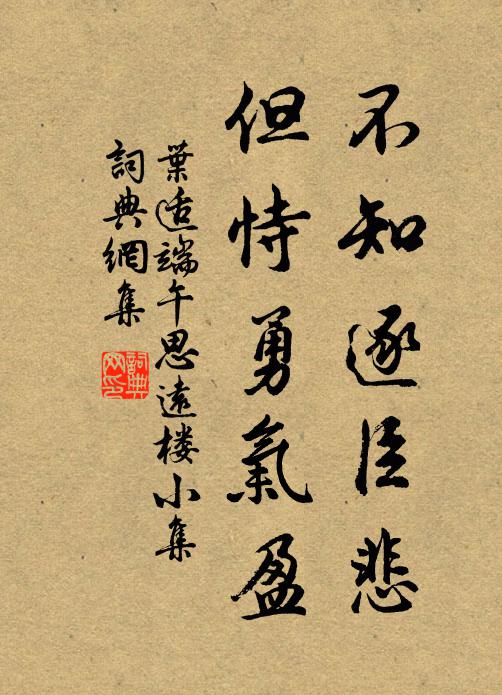 不知逐臣悲
但恃勇氣盈
葉适端午思遠楼小集
詞典網集
詞典网印